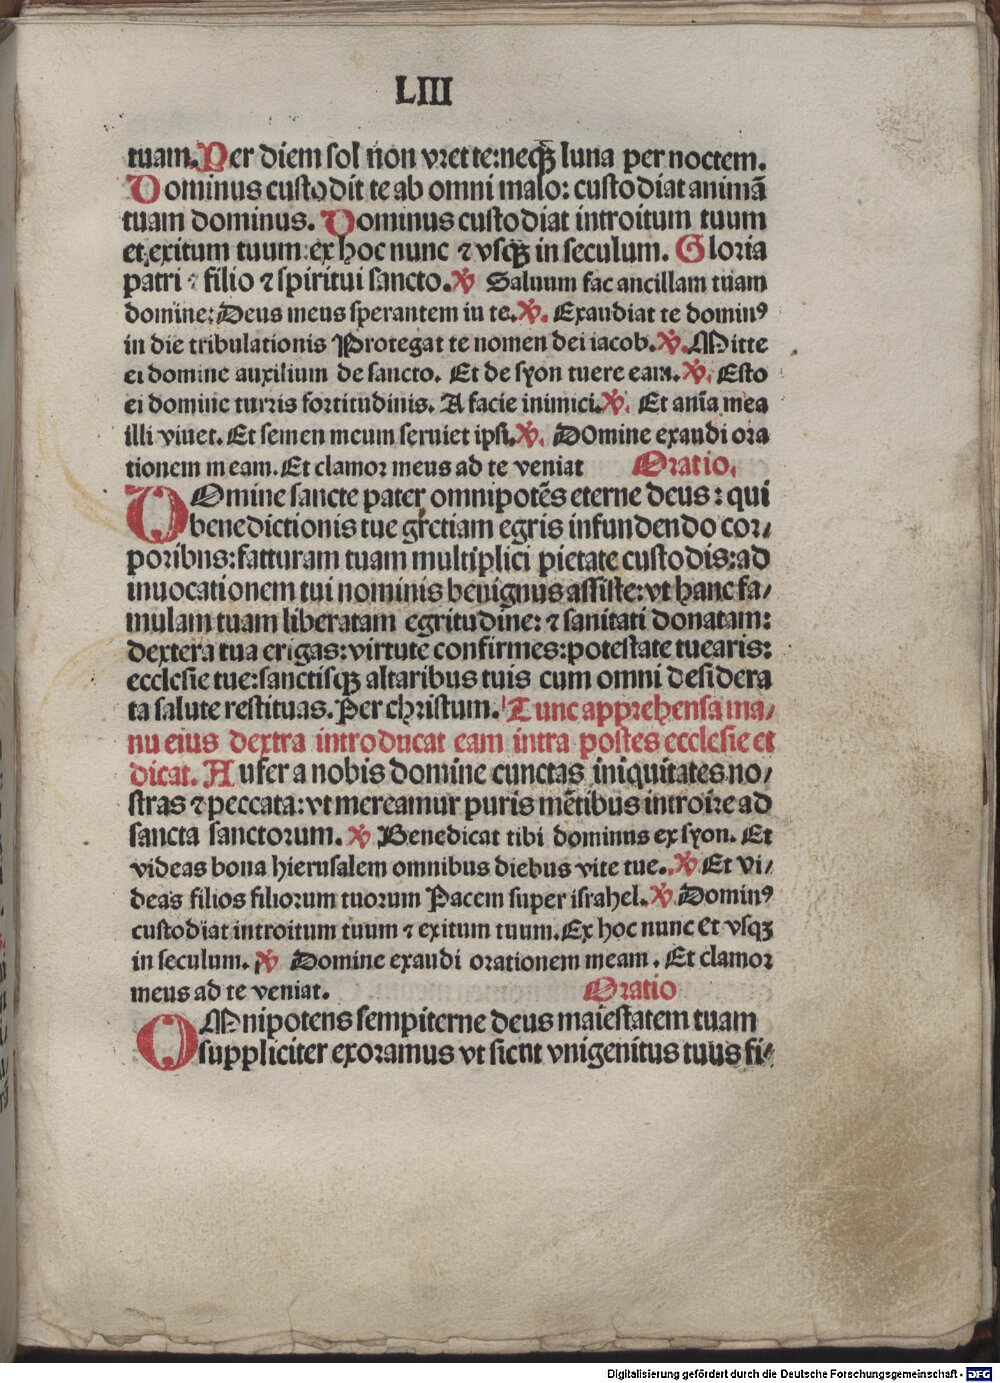 LIII
tuam. Per diem sol non vret te: neqꝫ luna per noctem.
Dominus custodit te ab omni malo: custodiat animã
tuam dominus. Dominus custodiat introitum tuum
et exitum tuum: ex hoc nunc ⁊ vsqꝫ in seculum. Gloria
patri ⁊ filio ⁊ spiritui sancto. ℣ Saluum fac ancillam tuam
domine: Deus meus sperantem in te. ℣. Exaudiat te dominꝰ
in die tribulationis Protegat te nomen dei iacob. ℣. Mitte
ei domine auxilium de sancto. Et de syon tuere eam. ℣. Esto
ei domine turris fortitudinis. A facie inimici. ℣. Et anĩa mea
illi viuet. Et semen meum seruiet ipsi. ℣. DOmine exaudi ora
tionem meam. Et clamor meus ad te veniat Oratio.
DOmine sancte pater omnipotẽs eterne deus: qui
benedictionis tue gretiam egris infundendo cor/
poribus: fatturam tuam multiplici pietate custodis: ad
inuocationem tui nominis benignus assiste: vt hanc fa/
mulam tuam liberatam egritudine: ⁊ sanitati donatam:
dextera tua erigas: virtute confirmes: potestate tuearis:
ecclesie tue: sanctisqꝫ altaribus tuis cum omni desidera
ta salute restituas. Per christum. Tunc apprehensa ma/
nu eius dextra introducat eam intra postes ecclesie et
dicat. Aufer a nobis domine cunctas iniquitates no/
stras ⁊ peccata: vt mereamur puris mẽtibus introire ad
sancta sanctorum. ℣ Benedicat tibi dominus ex syon. Et
videas bona hierusalem omnibus diebus vite tue. ℣ Et vi/
deas filios filiorum tuorum Pacem super israhel. ℣ Dominꝰ
custodiat introitum tuum ⁊ exitum tuum. Ex hoc nunc et vsqꝫ
in seculum. ℣ Domine exaudi orationem meam. Et clamor
meus ad te veniat. Oratio
OMnipotens sempiterne deus maiestatem tuam
suppliciter exoramus vt sicut vnigenitus tuus fi/
Digitalisierung gefördert durch die Deutsche Forschungsgemeinschaft - DFG